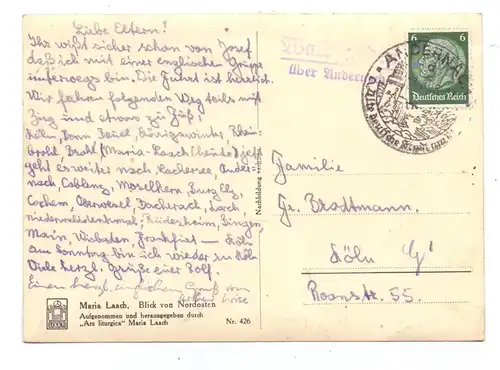 Liebe Eltern!
Ihr wißt sicher schon von Josef
daß ich mit einer englischen Gruppe
unterwegs bin. Die Fahrt ist herrlich.
Wir fahren folgenden Weg teils mit
Zug und etwas zu Fuß!
Köln, Bonn, Beuel, Königswinter, Rhein-
brohl, Brohl (Maria-Laach (heute)) jetzt
geht es weiter nach Laachersee, Ander-
nach, Coblenz, Moselkern, Burg Elz,
Cochem, Oberwesel, Bacharach, Lorch,
Niederwalddenkmal, Rüdesheim, Bingen,
Main, Wiesbaden, Frankfurt – Köln
am Sonntag bin ich wieder in Köln
Viele herzl. Grüße euer Rolf.
Einen herzl. englischen Gruß von
Maria Laach, Blick von Nordosten
Aufgenommen und herausgegeben durch
"Ars liturgica" Maria Laach
Nr. 426
Nachbildung verboten
über Andern
ANDERNA
6 6
Deutsches Reich
Familie
Fr. Brodtmann.
Köln
Roonstr. 55.